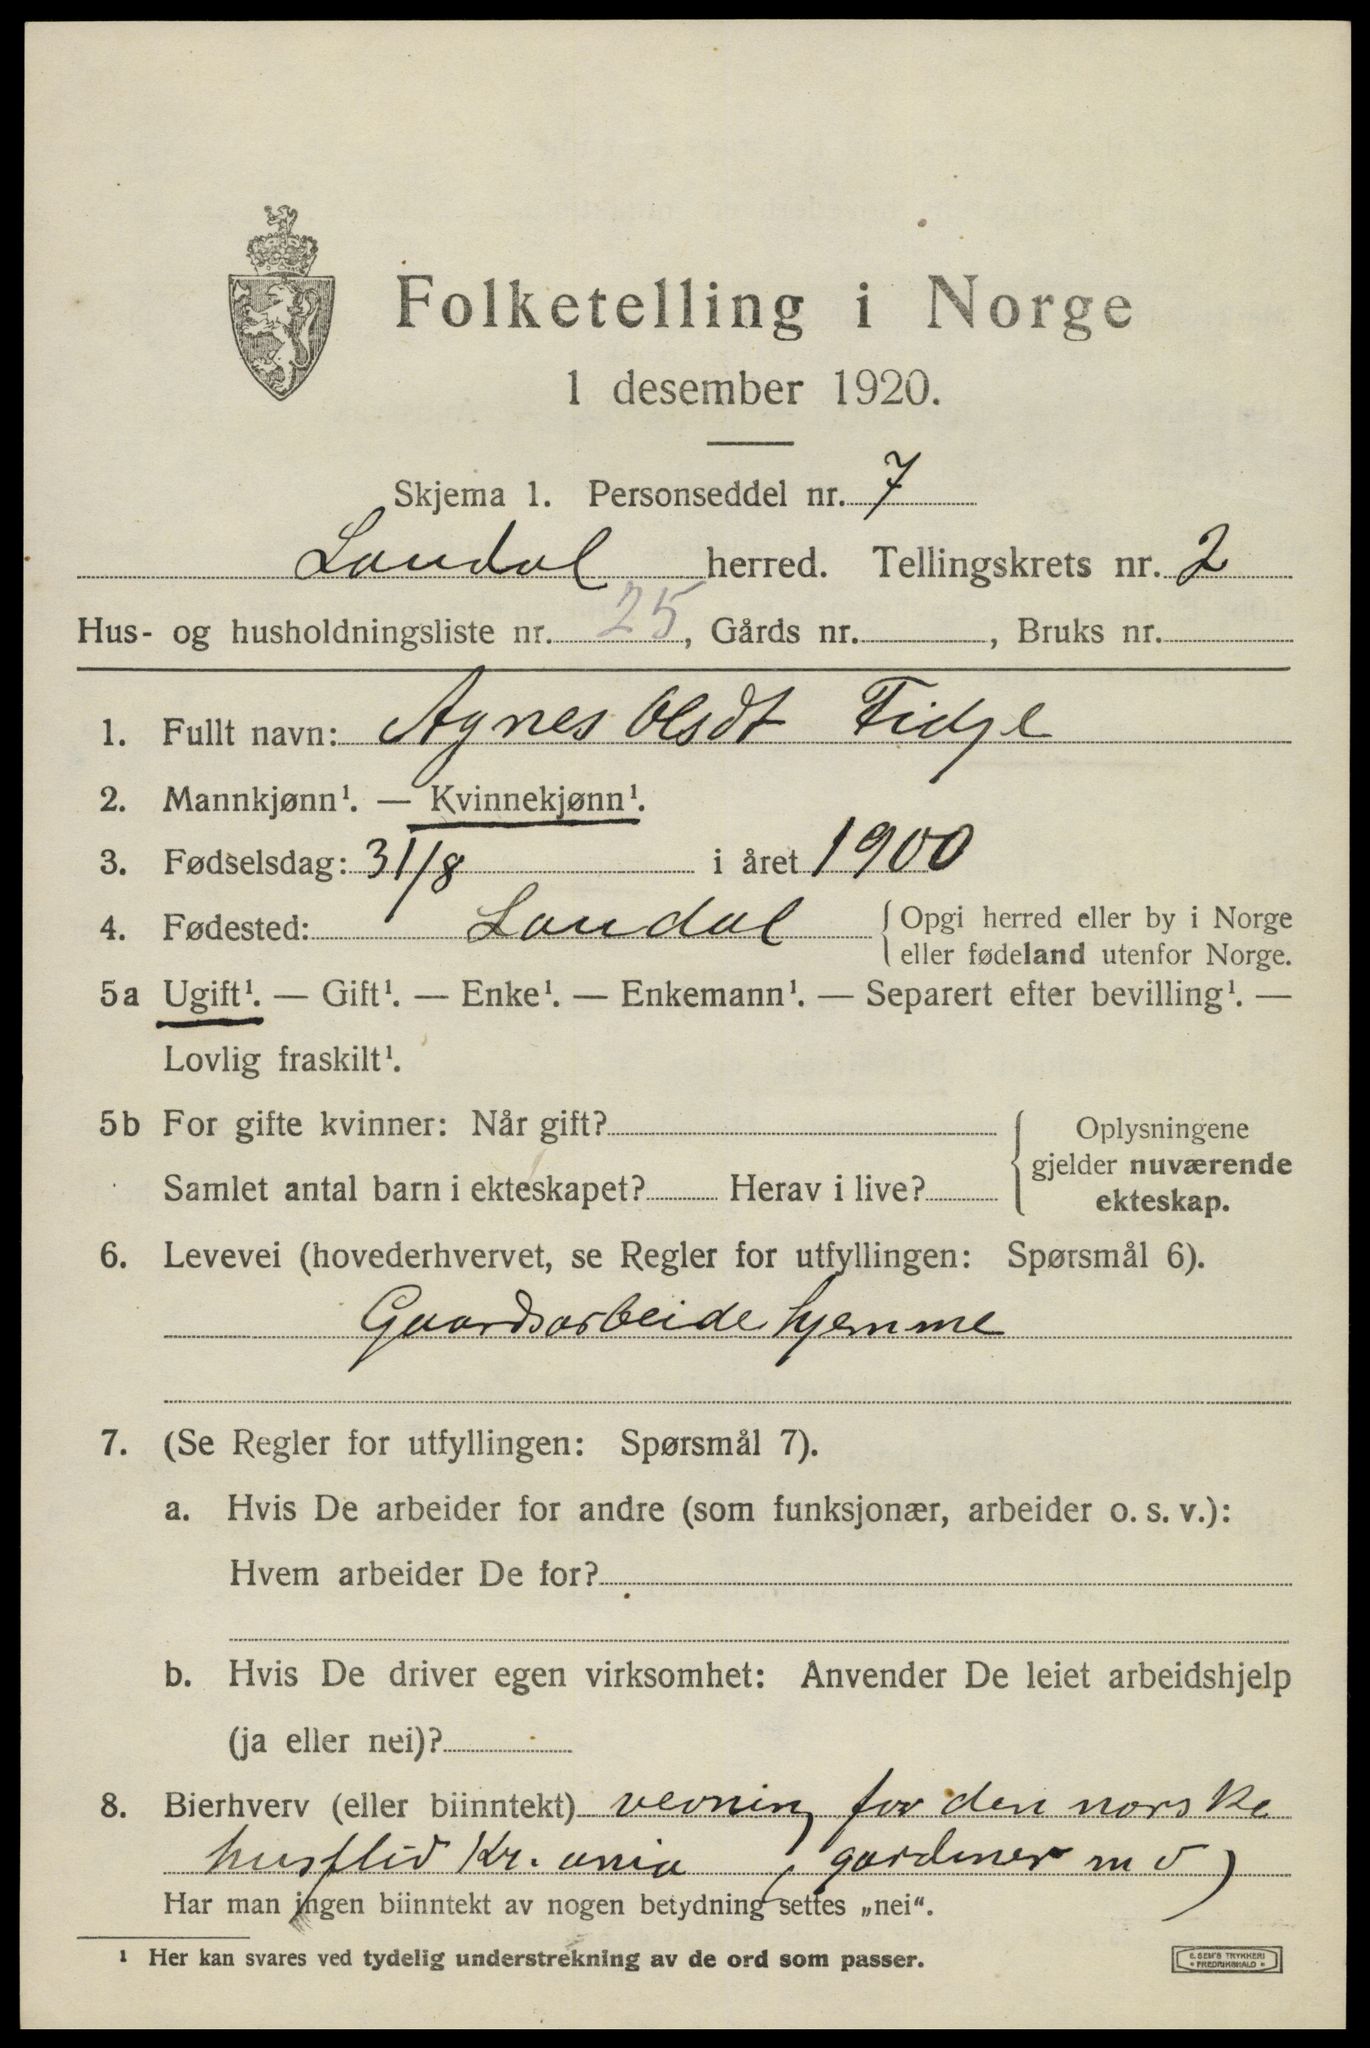 Folketelling i Norge
1 desember 1920.
Skjema 1. Personseddel nr. 7
Laudal herred. Tellingskrets nr. 2
Hus- og husholdningsliste nr. 25, Gårds nr. , Bruks nr.
1. Fullt navn: Agnes Olsdt Fidje
2. Mannkjønn¹. — Kvinnekjønn¹.
3. Fødselsdag: 31/8 i året 1900
4. Fødested: Laudal { Opgi herred eller by i Norge
eller fødeland utenfor Norge.
5a Ugift¹. — Gift¹. — Enke¹. — Enkemann¹. — Separert efter bevilling¹. —
Lovlig fraskilt¹.
5b For gifte kvinner: Når gift?
Samlet antal barn i ekteskapet? Herav i live?
Oplysningene
gjelder nuværende
ekteskap.
6. Levevei (hovederhvervet, se Regler for utfyllingen: Spørsmål 6).
Gaardsarbeide hjemme
7. (Se Regler for utfyllingen: Spørsmål 7).
a. Hvis De arbeider for andre (som funksjonær, arbeider o. s. v.):
Hvem arbeider De for?
b. Hvis De driver egen virksomhet: Anvender De leiet arbeidshjelp
(ja eller nei)?
8. Bierhverv (eller biinntekt) vevning for den norske
husflid Kr.ania (gardiner m v)
Har man ingen biinntekt av nogen betydning settes „nei“.
¹ Her kan svares ved tydelig understrekning av de ord som passer.
E. SEM'S TRYKKERI
• FREDRIKSHALD •